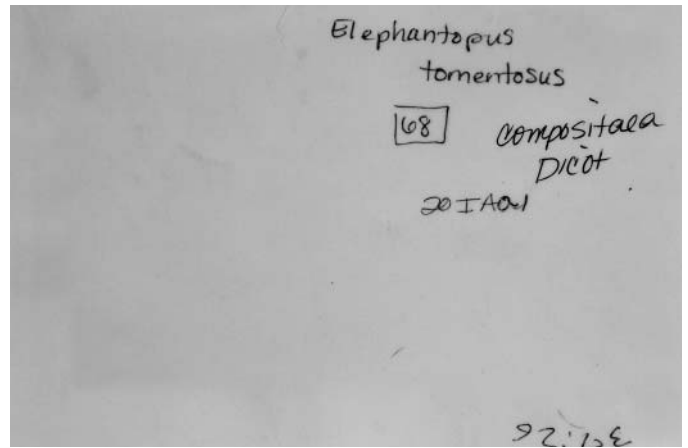 Elephantopus
tomentosus
68
Compositaea
Dicot